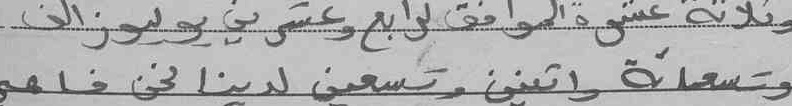 وثلاثة عشرة الموافق لرابع وعشرين يوليوز الف
وتسعمائة واثنين وتسعين لدينا نحن فاهم